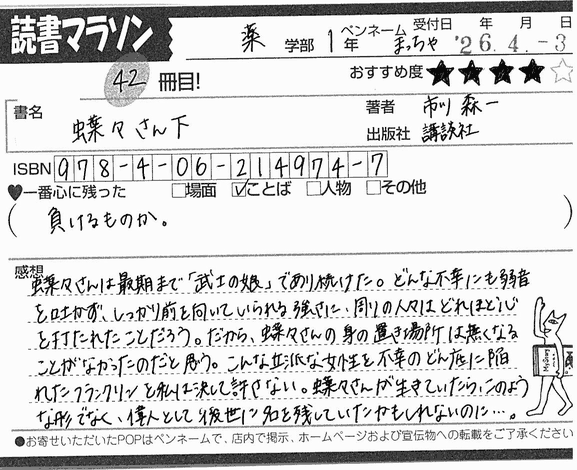 読書マラソン
薬 学部 1年 ペンネーム まっちゃ 受付日 年 月 日 '26.4.-3
42 冊目!
おすすめ度 ★★★★☆
書名 蝶々さん下
著者 市川 森一
出版社 講談社
ISBN 978-4-06-214974-7
♥一番心に残った □場面 ☑ことば □人物 □その他
(負けるものか。)
感想
蝶々さんは最期まで「武士の娘」であり続けた。どんな不幸にも弱音
を吐かず、しっかり前を向いていられる強さに、周りの人々はどれほど心
を打たれたことだろう。だから、蝶々さんの身の置き場所は無くなる
ことがなかったのだと思う。こんな立派な女性を不幸のどん底に陥
れたフランクリンを私は決して許さない。蝶々さんが生きていたら、このよう
な形でなく、偉人として後世に名を残していたかもしれないのに…。
●お寄せいただいたPOPはペンネームで、店内で掲示、ホームページおよび宣伝物への転載をご了承ください